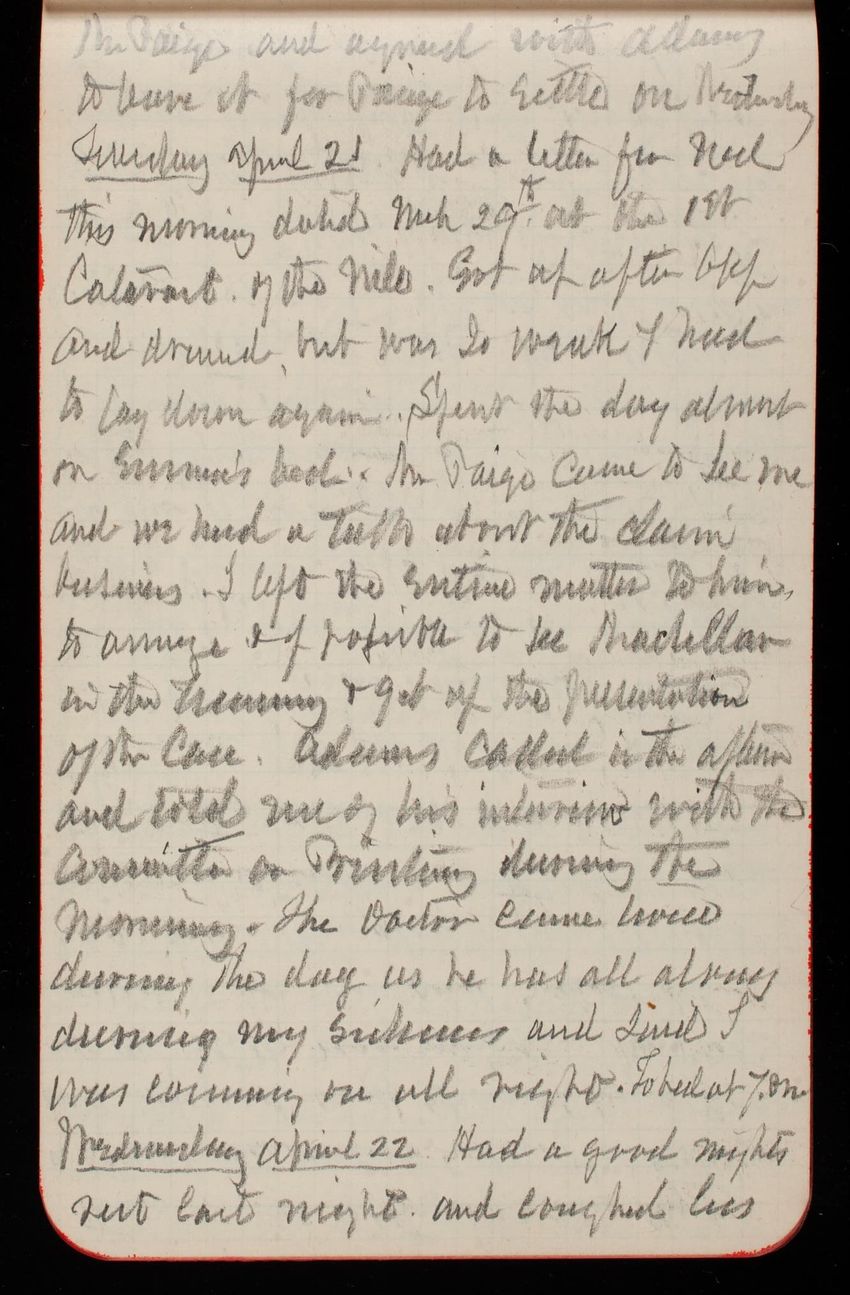 Mr Paige and agreed with Adams
to leave it for Paige to settle on Wednesday
Tuesday April 21 Had a letter from Ned
this morning dated Mch 29th at the 1st
Cataract. of the Nile. Got up after bkf
and dressed, but was so weak I had
to lay down again. Spent the day almost
on Emma's bed. Mr Paige came to see me
and we had a talk about the claim
business. I left the entire matter to him,
to arrange & if possible to see MacLellan
in the Treasury & get up the presentation
of the Case. Adams called in the aftern
and told me of his interview with the
Committee on Printing during the
morning. The Doctor came twice
during the day as he has all along
during my sickness and said I
was comming on all right. To bed at 7.
Wednesday April 22 Had a good nights
rest last night. and coughed less